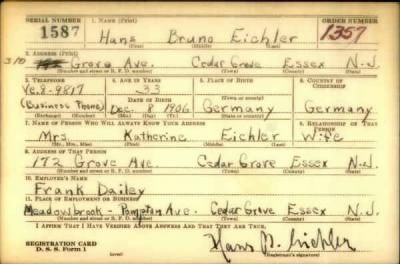 SERIAL NUMBER 1. NAME (Print) ORDER NUMBER
1587 Hans Bruno Eichler 1357
(First) (Middle) (Last)
2. ADDRESS (Print)
310 Grove Ave. Cedar Grove Essex N.J.
(Number and street or R. F. D. number) (Town) (County) (State)
3. TELEPHONE 4. AGE IN YEARS 5. PLACE OF BIRTH 6. COUNTRY OF CITIZENSHIP
Ve. 8-9817 33
(Business Phone) DATE OF BIRTH (Town or county)
Dec. 8 1906 Germany Germany
(Exchange) (Number) (Mo.) (Day) (Yr.) (State or country)
7. NAME OF PERSON WHO WILL ALWAYS KNOW YOUR ADDRESS 8. RELATIONSHIP OF THAT PERSON
Mrs. Katherine Eichler Wife
(Mr., Mrs., Miss) (First) (Middle) (Last)
9. ADDRESS OF THAT PERSON
172 Grove Ave. Cedar Grove Essex N.J.
(Number and street or R. F. D. number) (Town) (County) (State)
10. EMPLOYER'S NAME
Frank Dailey
11. PLACE OF EMPLOYMENT OR BUSINESS
Meadowbrook - Pompton Ave. Cedar Grove Essex N.J.
(Number and street or R. F. D. number) (Town) (County) (State)
I AFFIRM THAT I HAVE VERIFIED ABOVE ANSWERS AND THAT THEY ARE TRUE.
REGISTRATION CARD
D. S. S. Form 1 Hans B. Eichler
(Registrant's signature)